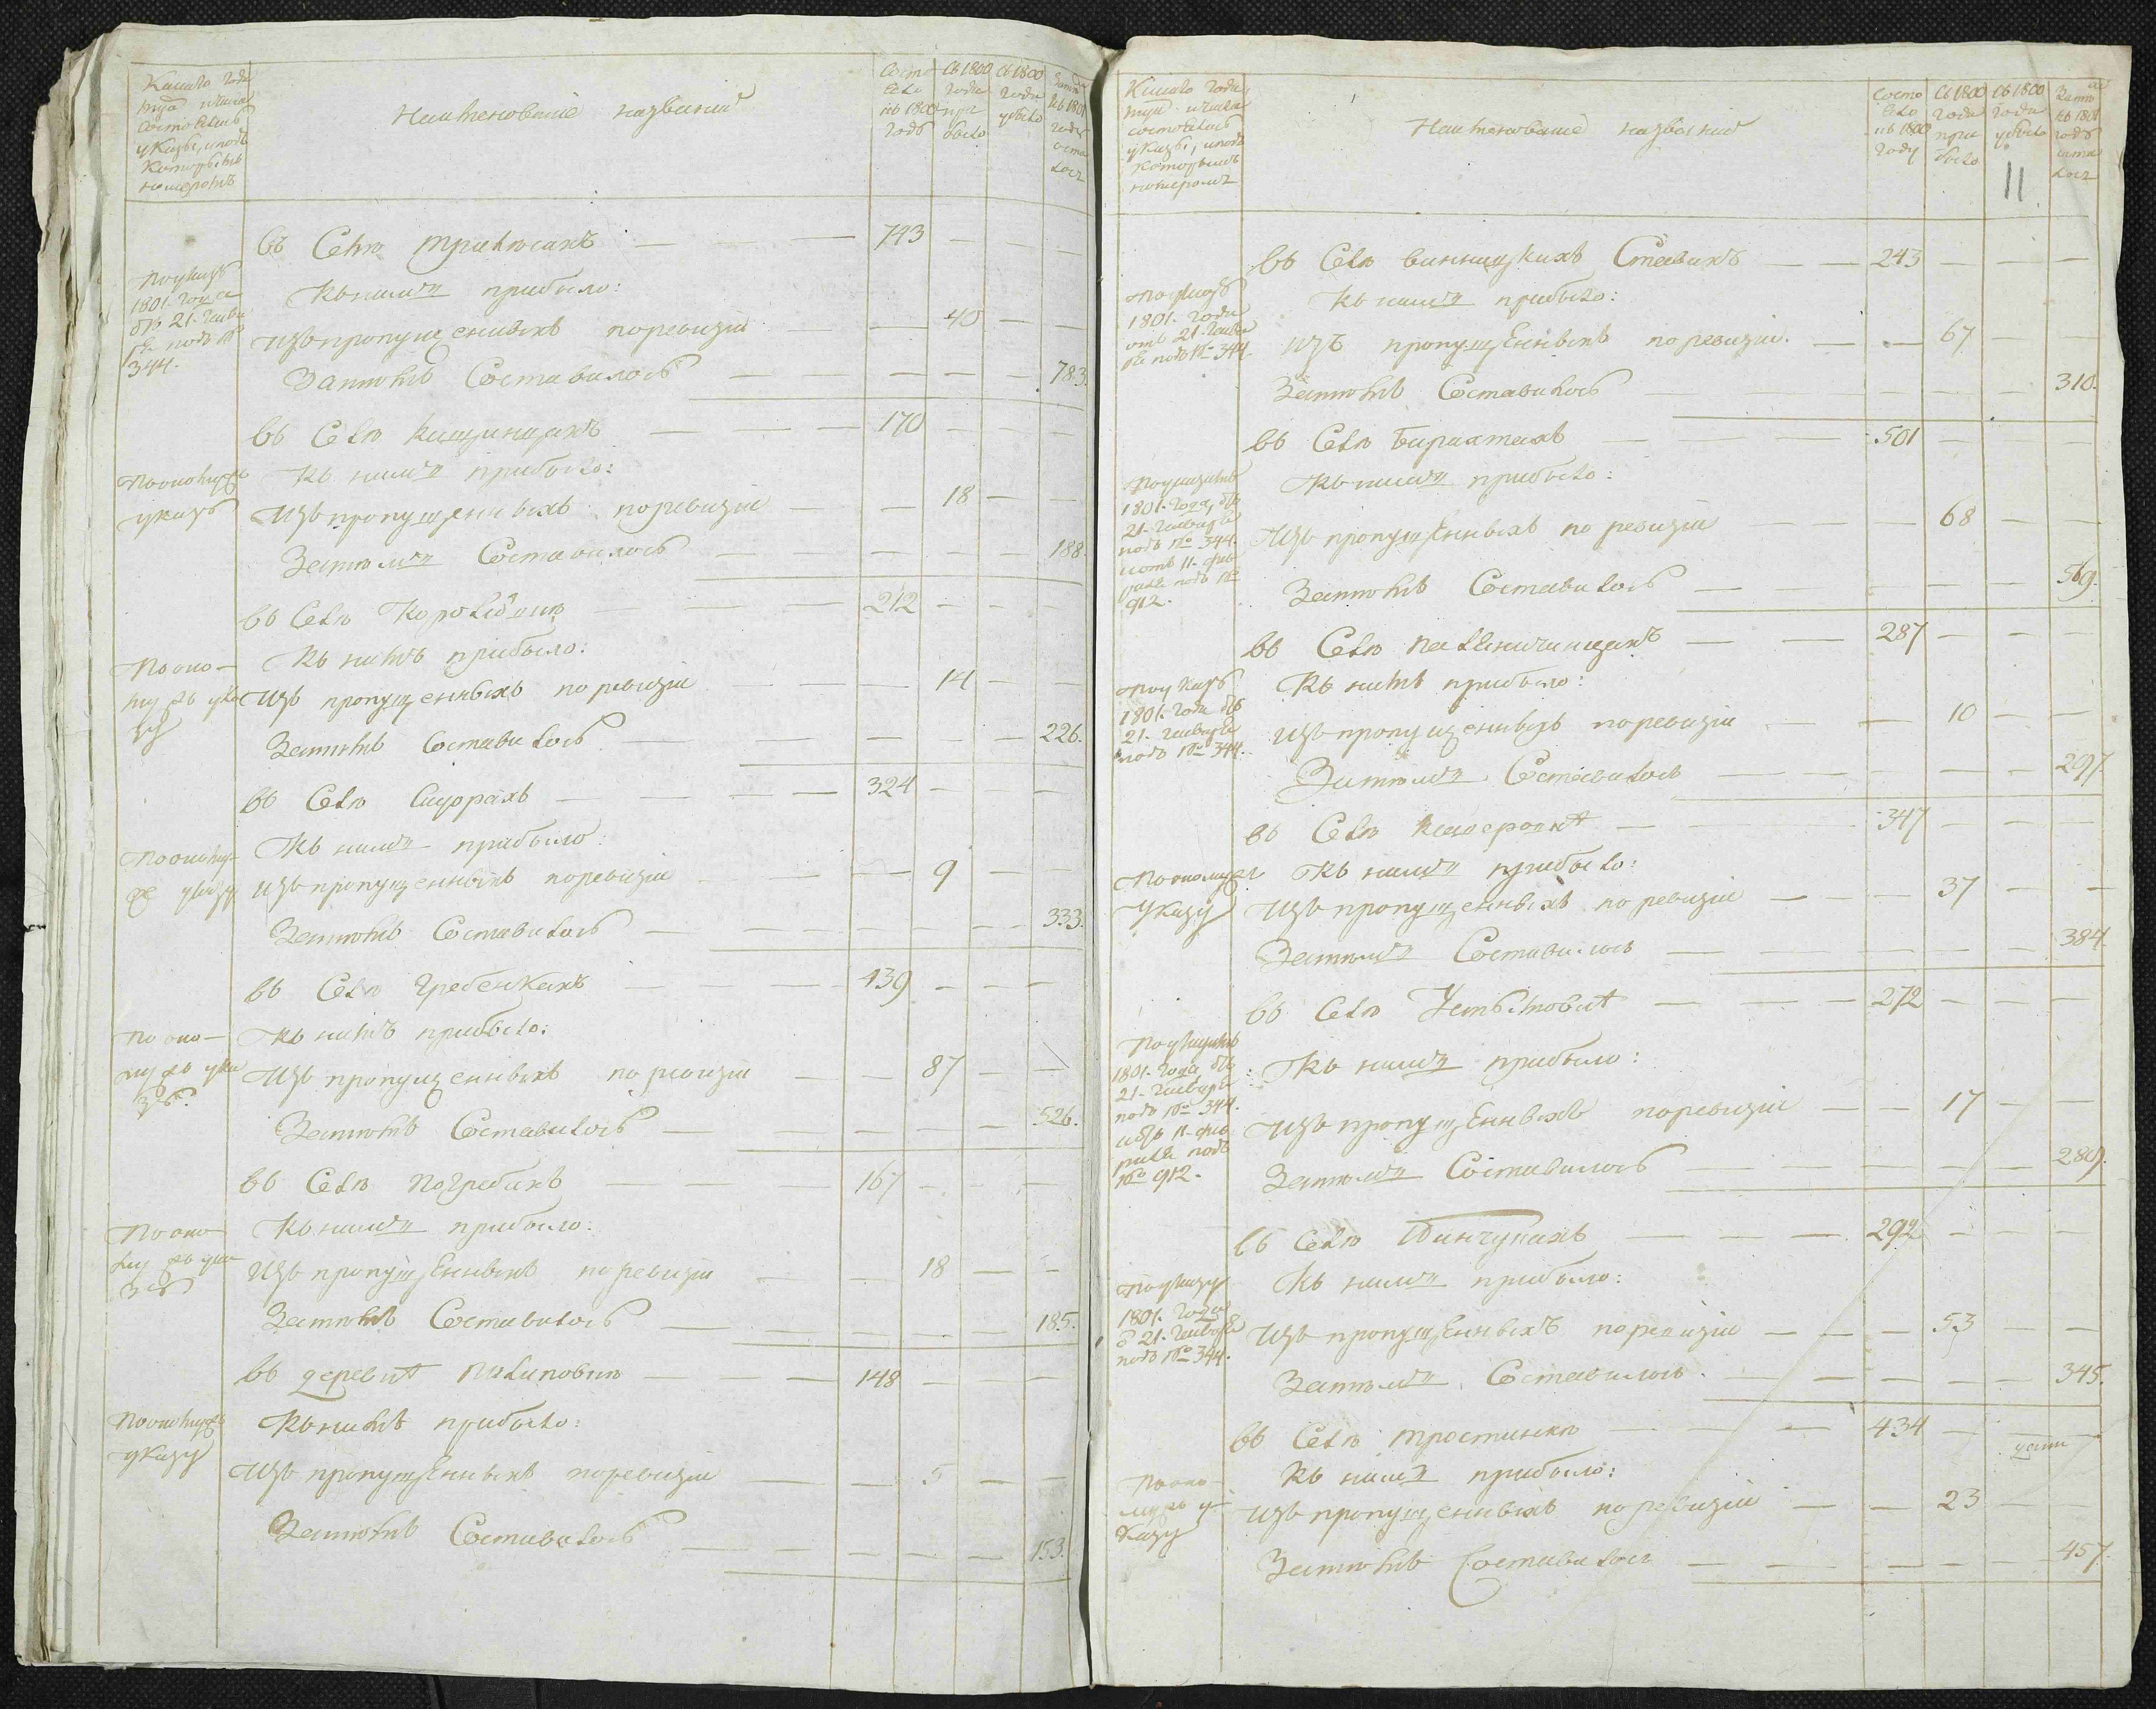 Какого года
муа и числа
состоялись
указы, и подъ
которымъ
номеромъ
Наименованіе названій
Состо
яло
въ 1800
годъ
Съ 1800
года
при
было
Съ 1800
года
убыло
Затѣмъ
къ 1801
году
оста
лось
въ Селѣ Трилѣсахъ — — — 743 — — —
По указу
1801. Года
отъ 21. Генва
ря подъ №
344.
Къ нимъ прибыло:
Изъ пропущенныхъ поревизіи — — 40 — —
Затѣмъ Составилось — — — — — 783.
въ Селѣ Кищинцахъ — — — 170 — — —
По ономужъ
указу
Къ нимъ прибыло:
Изъ пропущенныхъ поревизіи — — 18 — —
Затѣмъ Составилось — — — — — 188.
въ Селѣ — — — 212 — — —
По оно-
мужъ ука
зу
Къ нимъ прибыло:
Изъ пропущенныхъ поревизіи — — — 14 — —
Затѣмъ Составилось — — — — — 226.
въ Селѣ Сидорахъ — — — — 324 — — —
По оному-
же указу
Къ нимъ прибыло:
Изъ пропущенныхъ поревизіи — — — 9 — —
Затѣмъ Составилось — — — — — — 333.
въ Селѣ Гребенкахъ — — — 439 — — —
По оно-
мужъ ука
зу
Къ нимъ прибыло:
Изъ пропущенныхъ поревизіи — — 87 — —
Затѣмъ Составилось — — — — — 526.
въ Селѣ Погребахъ — — — 167 — — —
По оно
мужъ ука
зу
Къ нимъ прибыло:
Изъ пропущенныхъ поревизіи — — 18 — —
Затѣмъ Составилось — — — — — — 185.
въ деревнѣ Пилиповкѣ — — — 148 — — —
По ономужъ
указу
Къ нимъ прибыло:
Изъ пропущенныхъ поревизіи — — 5 — —
Затѣмъ Составилось — — — — — 153.
Какого года
муа и числа
состоялись
указы, и подъ
которымъ
номеромъ
Наименованіе названій
Состо
яло
въ 1800
году
Съ 1800
года
при
было
Съ 1800
года
убыло
Затѣмъ
къ 1801
годъ
оста
лось
11
въ Селѣ Винницкихъ Ставахъ — — 243 — — —
По указу
1801. Года
отъ 21. Генва
ря подъ № 344.
Къ нимъ прибыло:
Изъ пропущенныхъ поревизіи. — — 67 — —
Затѣмъ Составилось — — — — — 310.
въ Селѣ Барахтахъ — — — 501 — — —
По указамъ
1801. Года, отъ
21. Генваря
подъ № 344.
и отъ 11. Фев
раля подъ №
912.
Къ нимъ прибыло:
Изъ пропущенныхъ по ревизіи — — — 68 — —
Затѣмъ Составилось — — — — 569.
въ Селѣ Паляничинцахъ — — 287 — — —
По указу
1801. Года отъ
21. Генваря
подъ № 344.
Къ нимъ прибыло:
Изъ пропущенныхъ поревизіи — — 10 — —
Затѣмъ Составилось — — — — — 297.
въ Селѣ — — — 347 — — —
По ономуже
Указу
Къ нимъ прибыло:
Изъ пропущенныхъ по ревизіи — — — 37 — —
Затѣмъ Составилось — — — — — 384.
въ Селѣ Устьмовкѣ — — — — 272 — — —
По указамъ
1801. Года отъ
21. Генваря
подъ № 344.
и отъ 11. Фев
раля подъ
№ 912.
Къ нимъ прибыло:
Изъ пропущенныхъ поревизіи — — 17 — —
Затѣмъ Составилось — — — — — — 289.
въ Селѣ Винчукахъ — — — — 292 — — —
По указу
1801. Года
о 21. Генваря
подъ № 344.
Къ нимъ прибыло:
Изъ пропущенныхъ поревизіи — — — 53 — —
Затѣмъ Составилось. — — — — — — 345.
въ Селѣ Тростинкѣ — — — 434 — — —
По оно-
мужъ у-
казу
Къ нимъ прибыло:
Изъ пропущенныхъ поревизіи — — 23 — —
Затѣмъ Составилось — — — — — — 457.